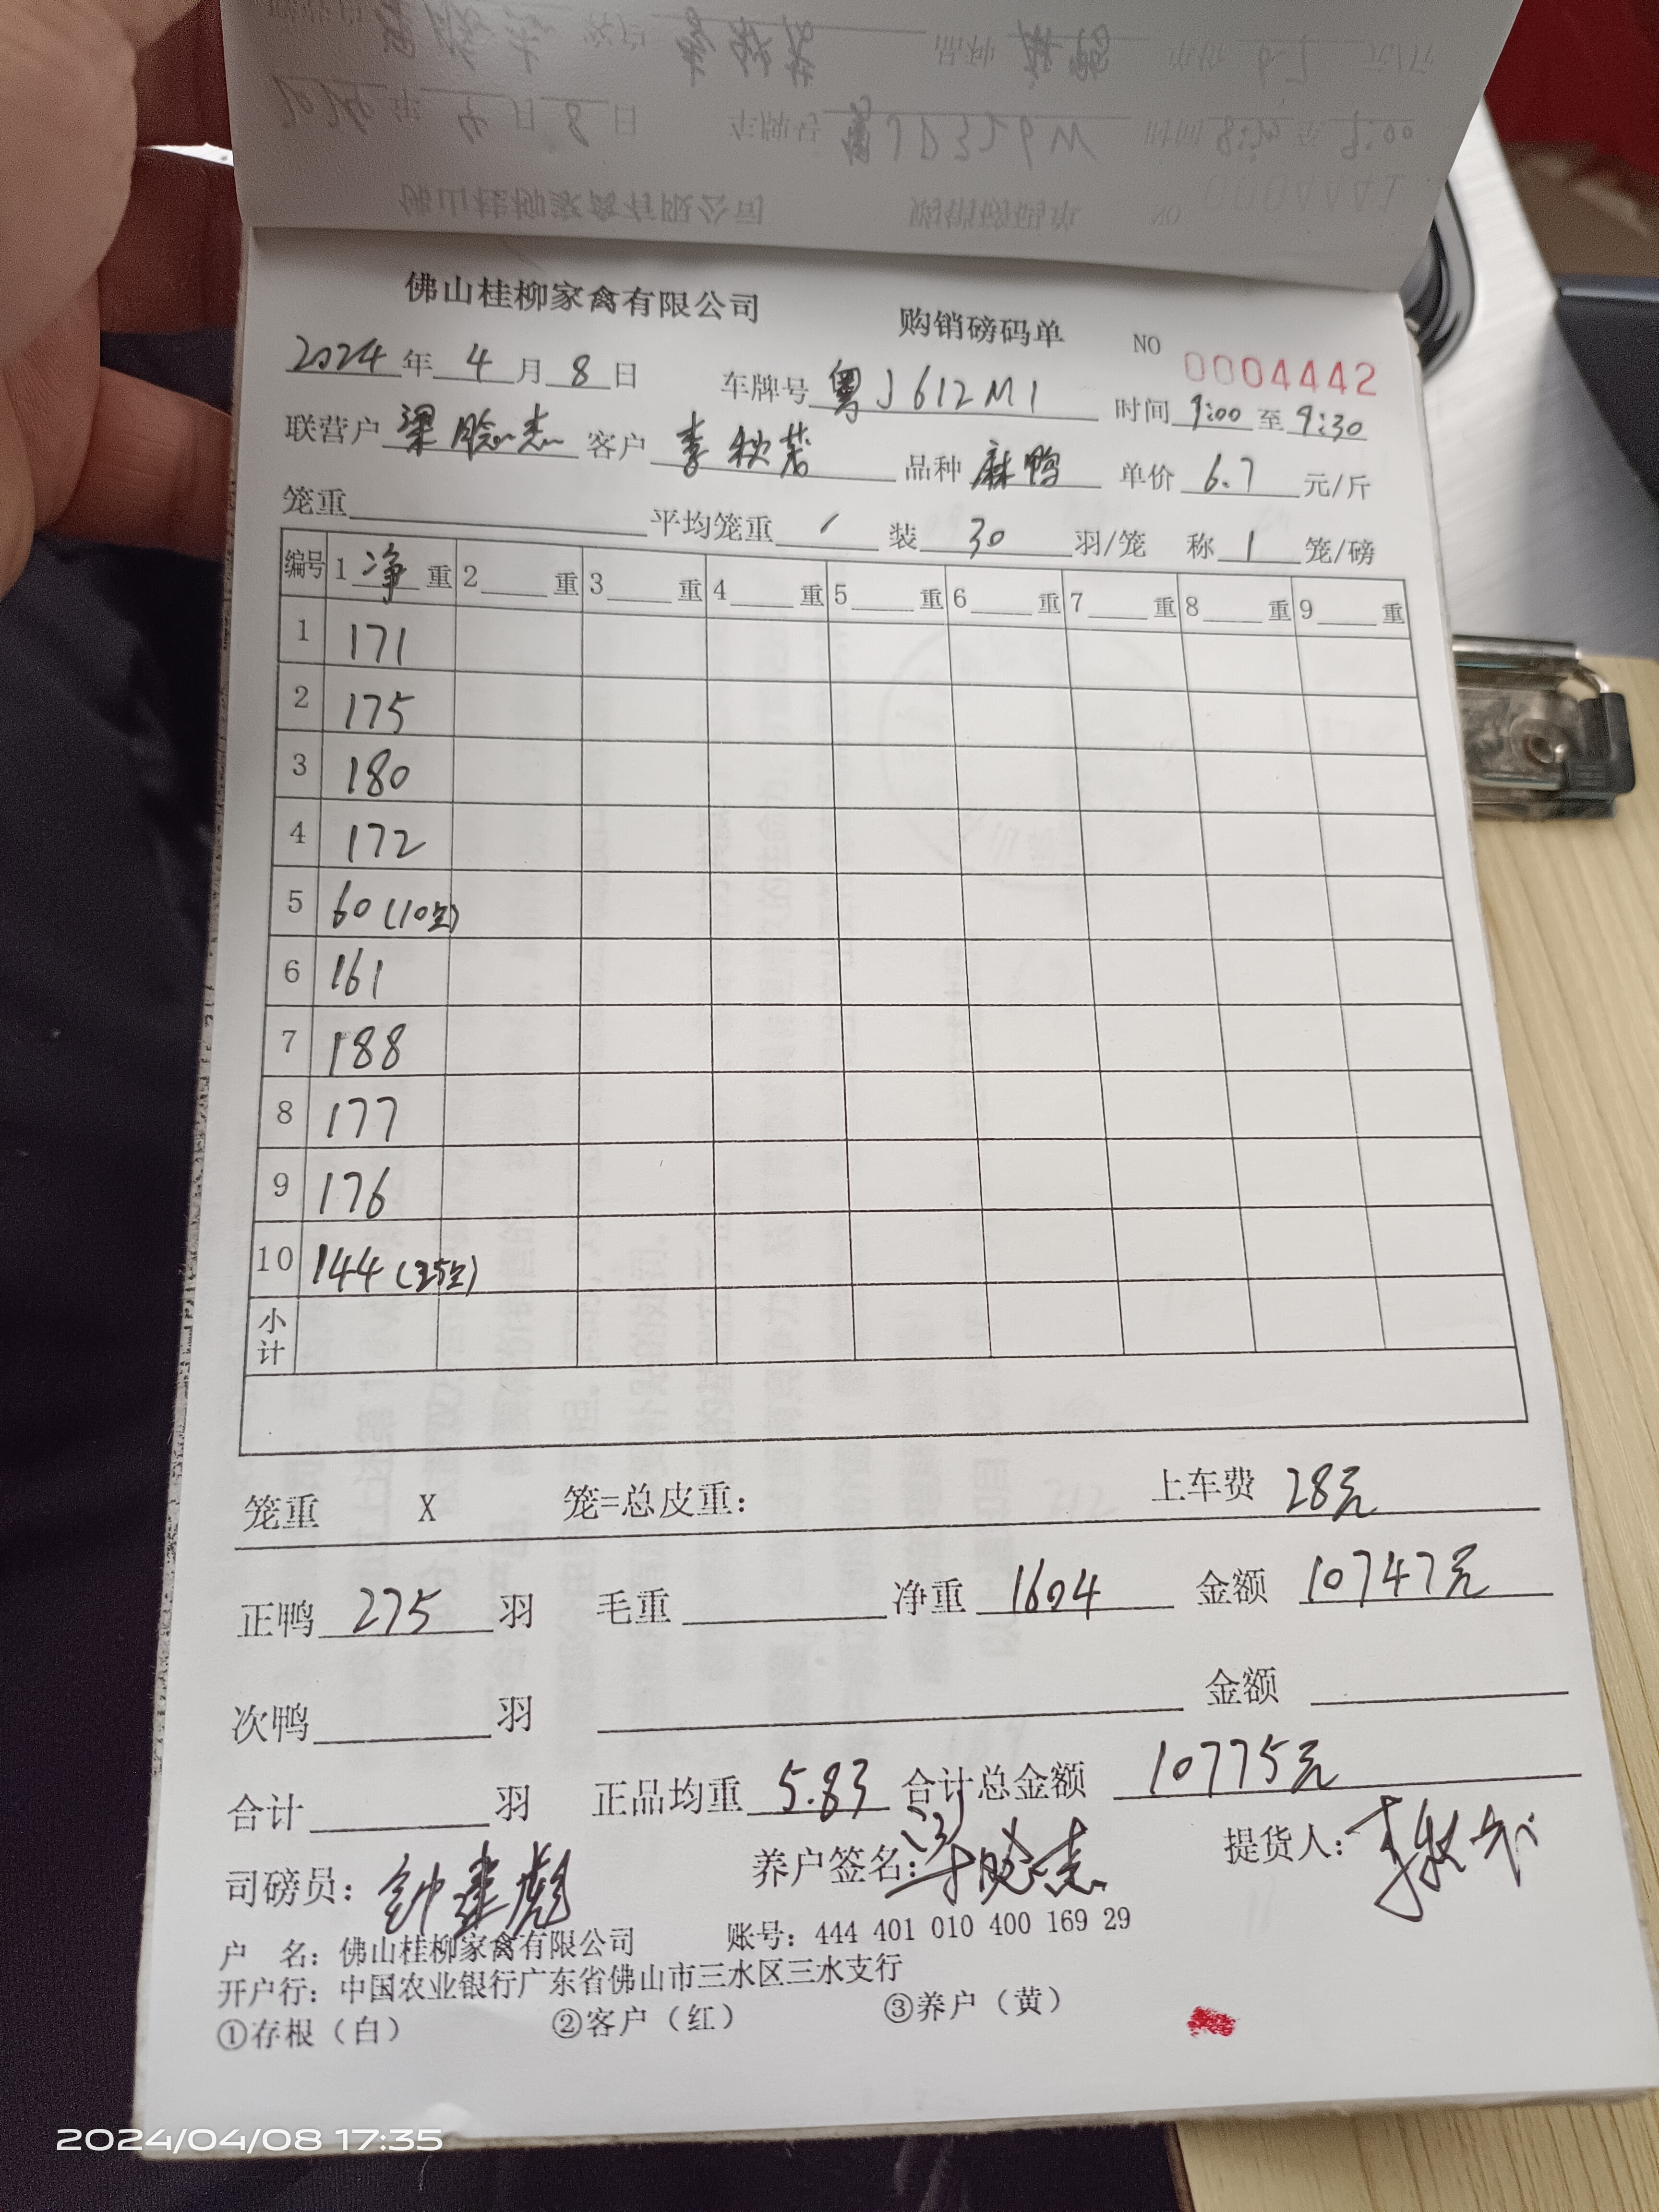 佛山桂柳家禽有限公司 购销磅码单 NO 0004442
2024年4月8日 车牌号 粤J612M1 时间 9:00 至 9:30
联营户 梁晓杰 客户 李秋 品种 麻鸭 单价 6.7 元/斤
笼重 平均笼重 / 装 30 羽/笼 称 1 笼/磅
编号 1 净 重 2 重 3 重 4 重 5 重 6 重 7 重 8 重 9 重
1 171
2 175
3 180
4 172
5 60(10只)
6 161
7 188
8 177
9 176
10 144(25只)
小计
笼重 X 笼=总皮重: 上车费 28元
正鸭 275 羽 毛重 净重 1604 金额 10747元
次鸭 羽 金额
合计 羽 正品均重 5.83 合计总金额 10775元
司磅员: 钟建彪 养户签名: 梁晓杰 提货人: 李秋
户 名: 佛山桂柳家禽有限公司 账号: 444 401 010 400 169 29
开户行: 中国农业银行广东省佛山市三水区三水支行
①存根（白） ②客户（红） ③养户（黄）
2024/04/08 17:35